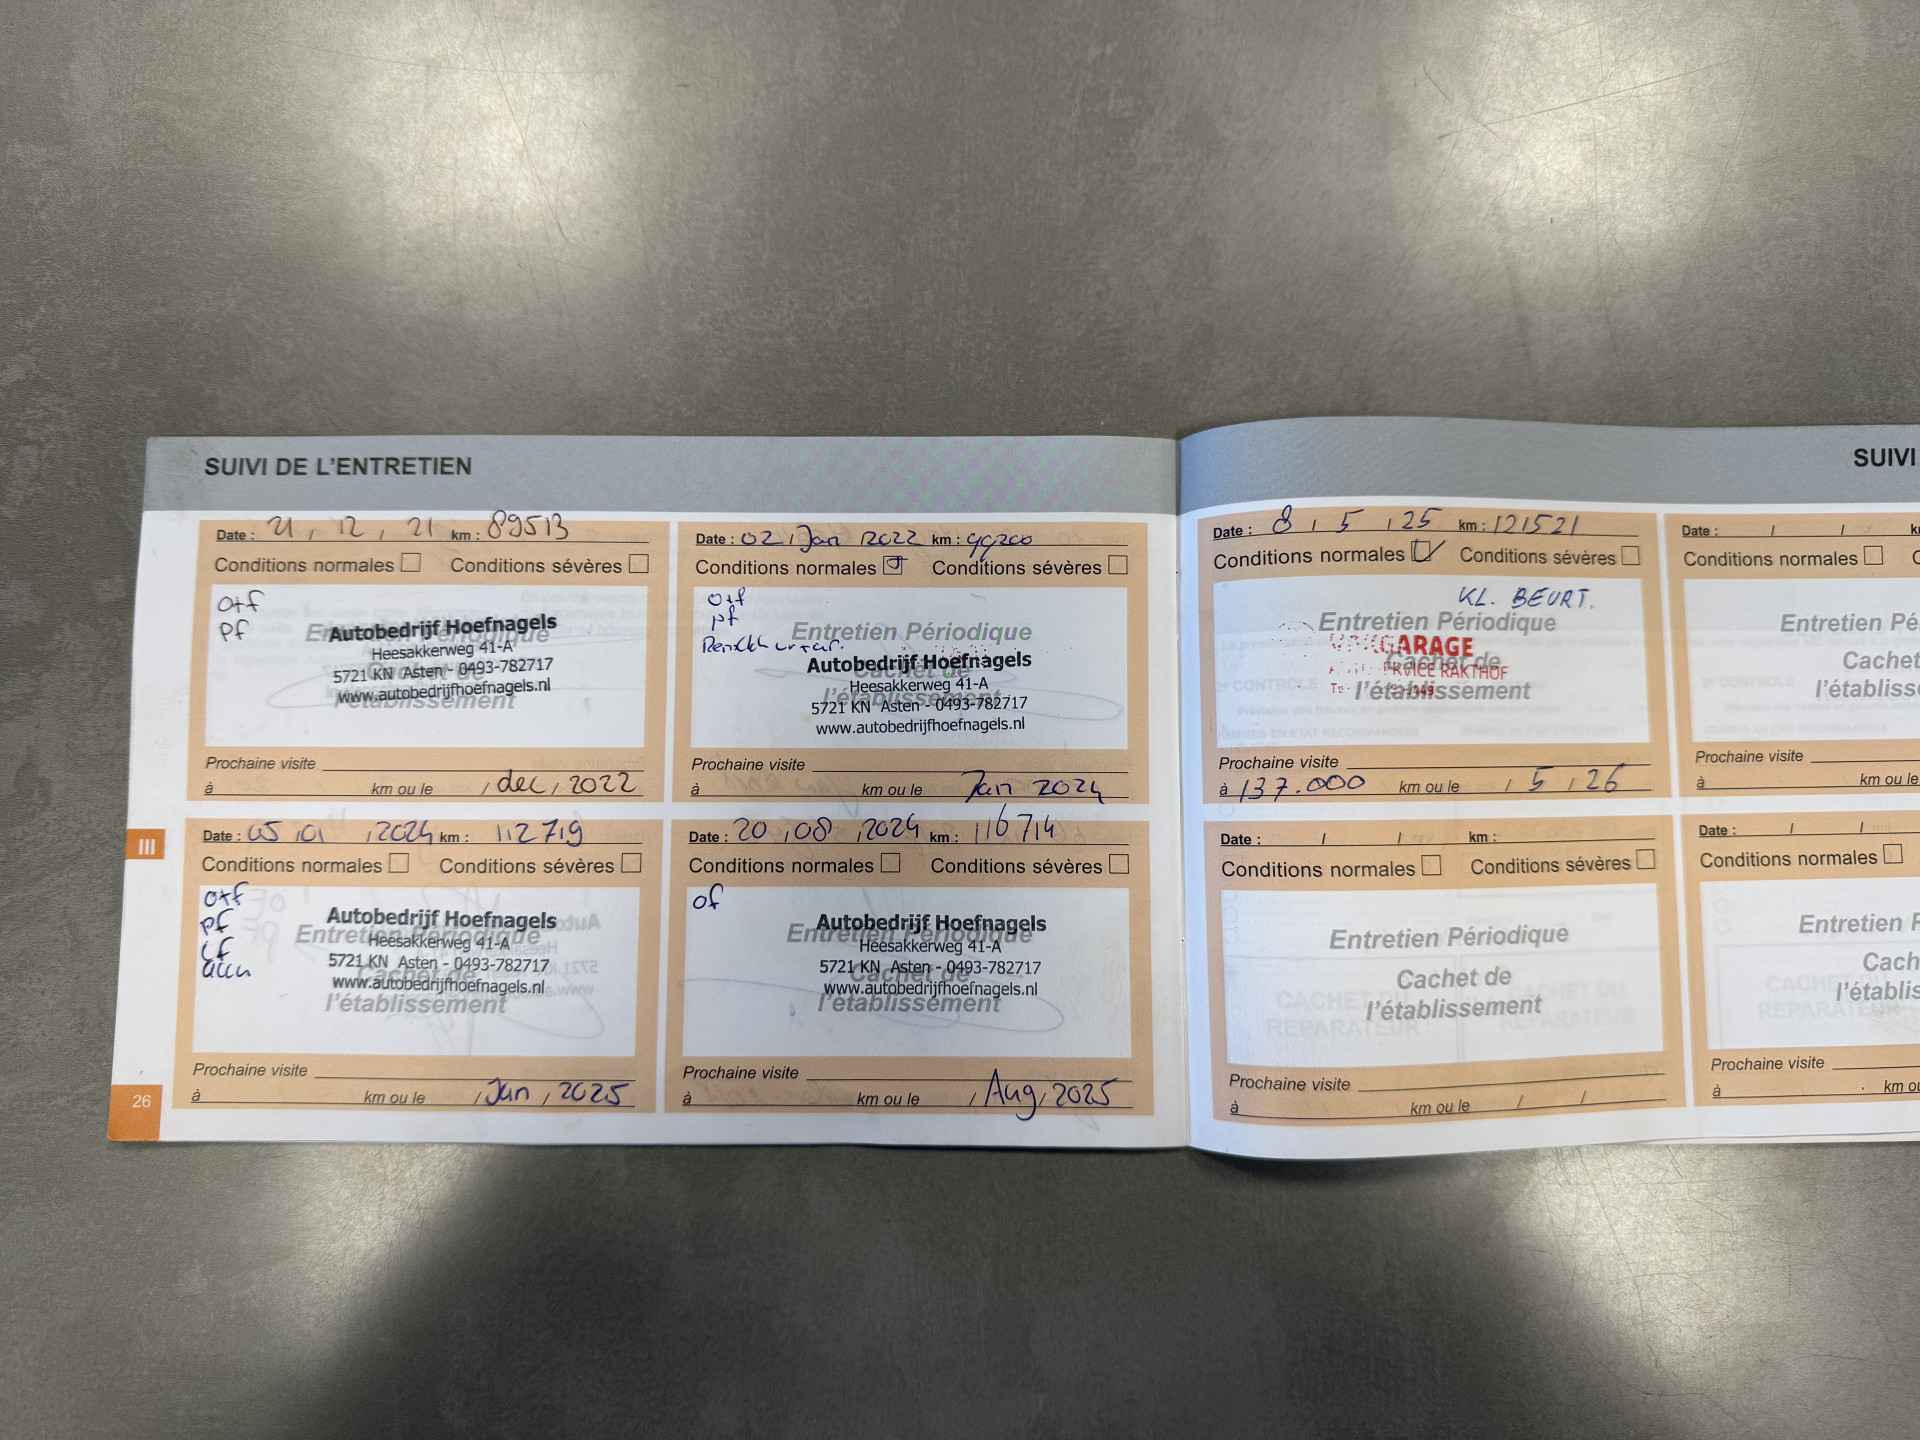 SUIVI DE L'ENTRETIEN
Date : 21, 12, 21 km : 89513
Conditions normales Conditions sévères
o+f
pf
Entretien Périodique
Autobedrijf Hoefnagels
Heesakkerweg 41-A
5721 KN Asten - 0493-782717
www.autobedrijfhoefnagels.nl
l'établissement
Prochaine visite
à km ou le , dec, 2022
Date : 02, Jan 2022 km : 99200
Conditions normales Conditions sévères
o+f
pf
Entretien Périodique
Autobedrijf Hoefnagels
Cachet de
Heesakkerweg 41-A
l'établissement
5721 KN Asten - 0493-782717
www.autobedrijfhoefnagels.nl
Prochaine visite
à km ou le Jan 2024
III
Date : 05, 01, 2024 km : 112719
Conditions normales Conditions sévères
o+f
pf
Autobedrijf Hoefnagels
Entretien Périodique
Heesakkerweg 41-A
5721 KN Asten - 0493-782717
Cachet de
www.autobedrijfhoefnagels.nl
l'établissement
Prochaine visite
à km ou le / Jan, 2025
Date : 20, 08, 2024 km : 116714
Conditions normales Conditions sévères
of
Autobedrijf Hoefnagels
Entretien Périodique
Heesakkerweg 41-A
5721 KN Asten - 0493-782717
Cachet de
www.autobedrijfhoefnagels.nl
l'établissement
Prochaine visite
à km ou le / Aug, 2025
26
SUIVI
Date : 8 / 5 / 25 km : 121521
Conditions normales Conditions sévères
KL. BEURT.
Entretien Périodique
GARAGE
Cachet de
RAKTHOF
l'établissement
Prochaine visite
à 137.000 km ou le / 5 / 26
Date : / /
Conditions normales
Entretien
Cachet
Prochaine visite
à km ou le
Date : / / km :
Conditions normales Conditions sévères
Entretien Périodique
Cachet de
l'établissement
Prochaine visite
à km ou le / /
Date : / /
Conditions normales
Entretien
Prochaine visite
à km